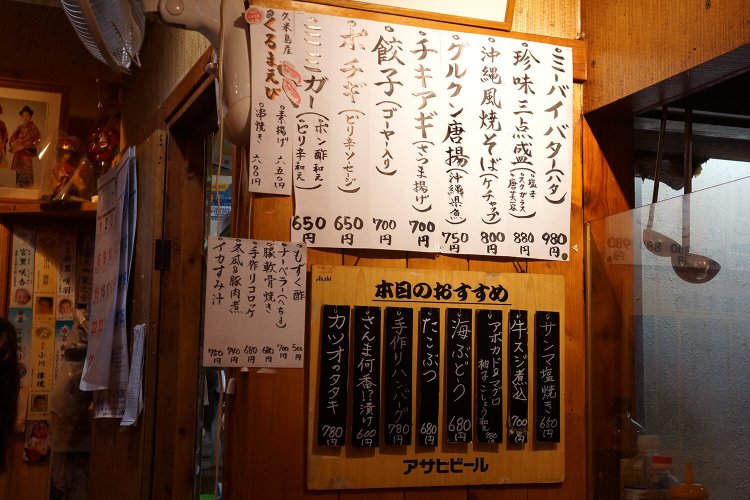 ミーバイバター(ハタ)
980円
珍味三点盛
880円
沖縄風焼そば(ケチャップ)
800円
グルクン唐揚(沖縄県魚)
750円
チキアギ(さつま揚げ)
700円
餃子(ゴーヤー入り)
700円
ポチギ(ピリ辛ソーセージ)
650円
ミミガー(ポン酢和え・ピリ辛和え)
650円
久米島産
くるまえび
・素揚げ 六五〇円
・串焼き 六〇〇円
・もずく酢
500円
・チーベラー(へちま)
700円
・豚軟骨焼き
680円
・手作りコロッケ
680円
・冬瓜&豚肉煮
780円
・イカすみ汁
750円
Asahi
本日のおすすめ
サンマ塩焼き
650円
牛スジ煮込
700円
アボカド&マグロ
柚子こしょう和え
780円
海ぶどう
680円
たこぶつ
680円
手作りハンバーグ
780円
さんま何番!?漬け
600円
カツオのタタキ
780円
アサヒビール